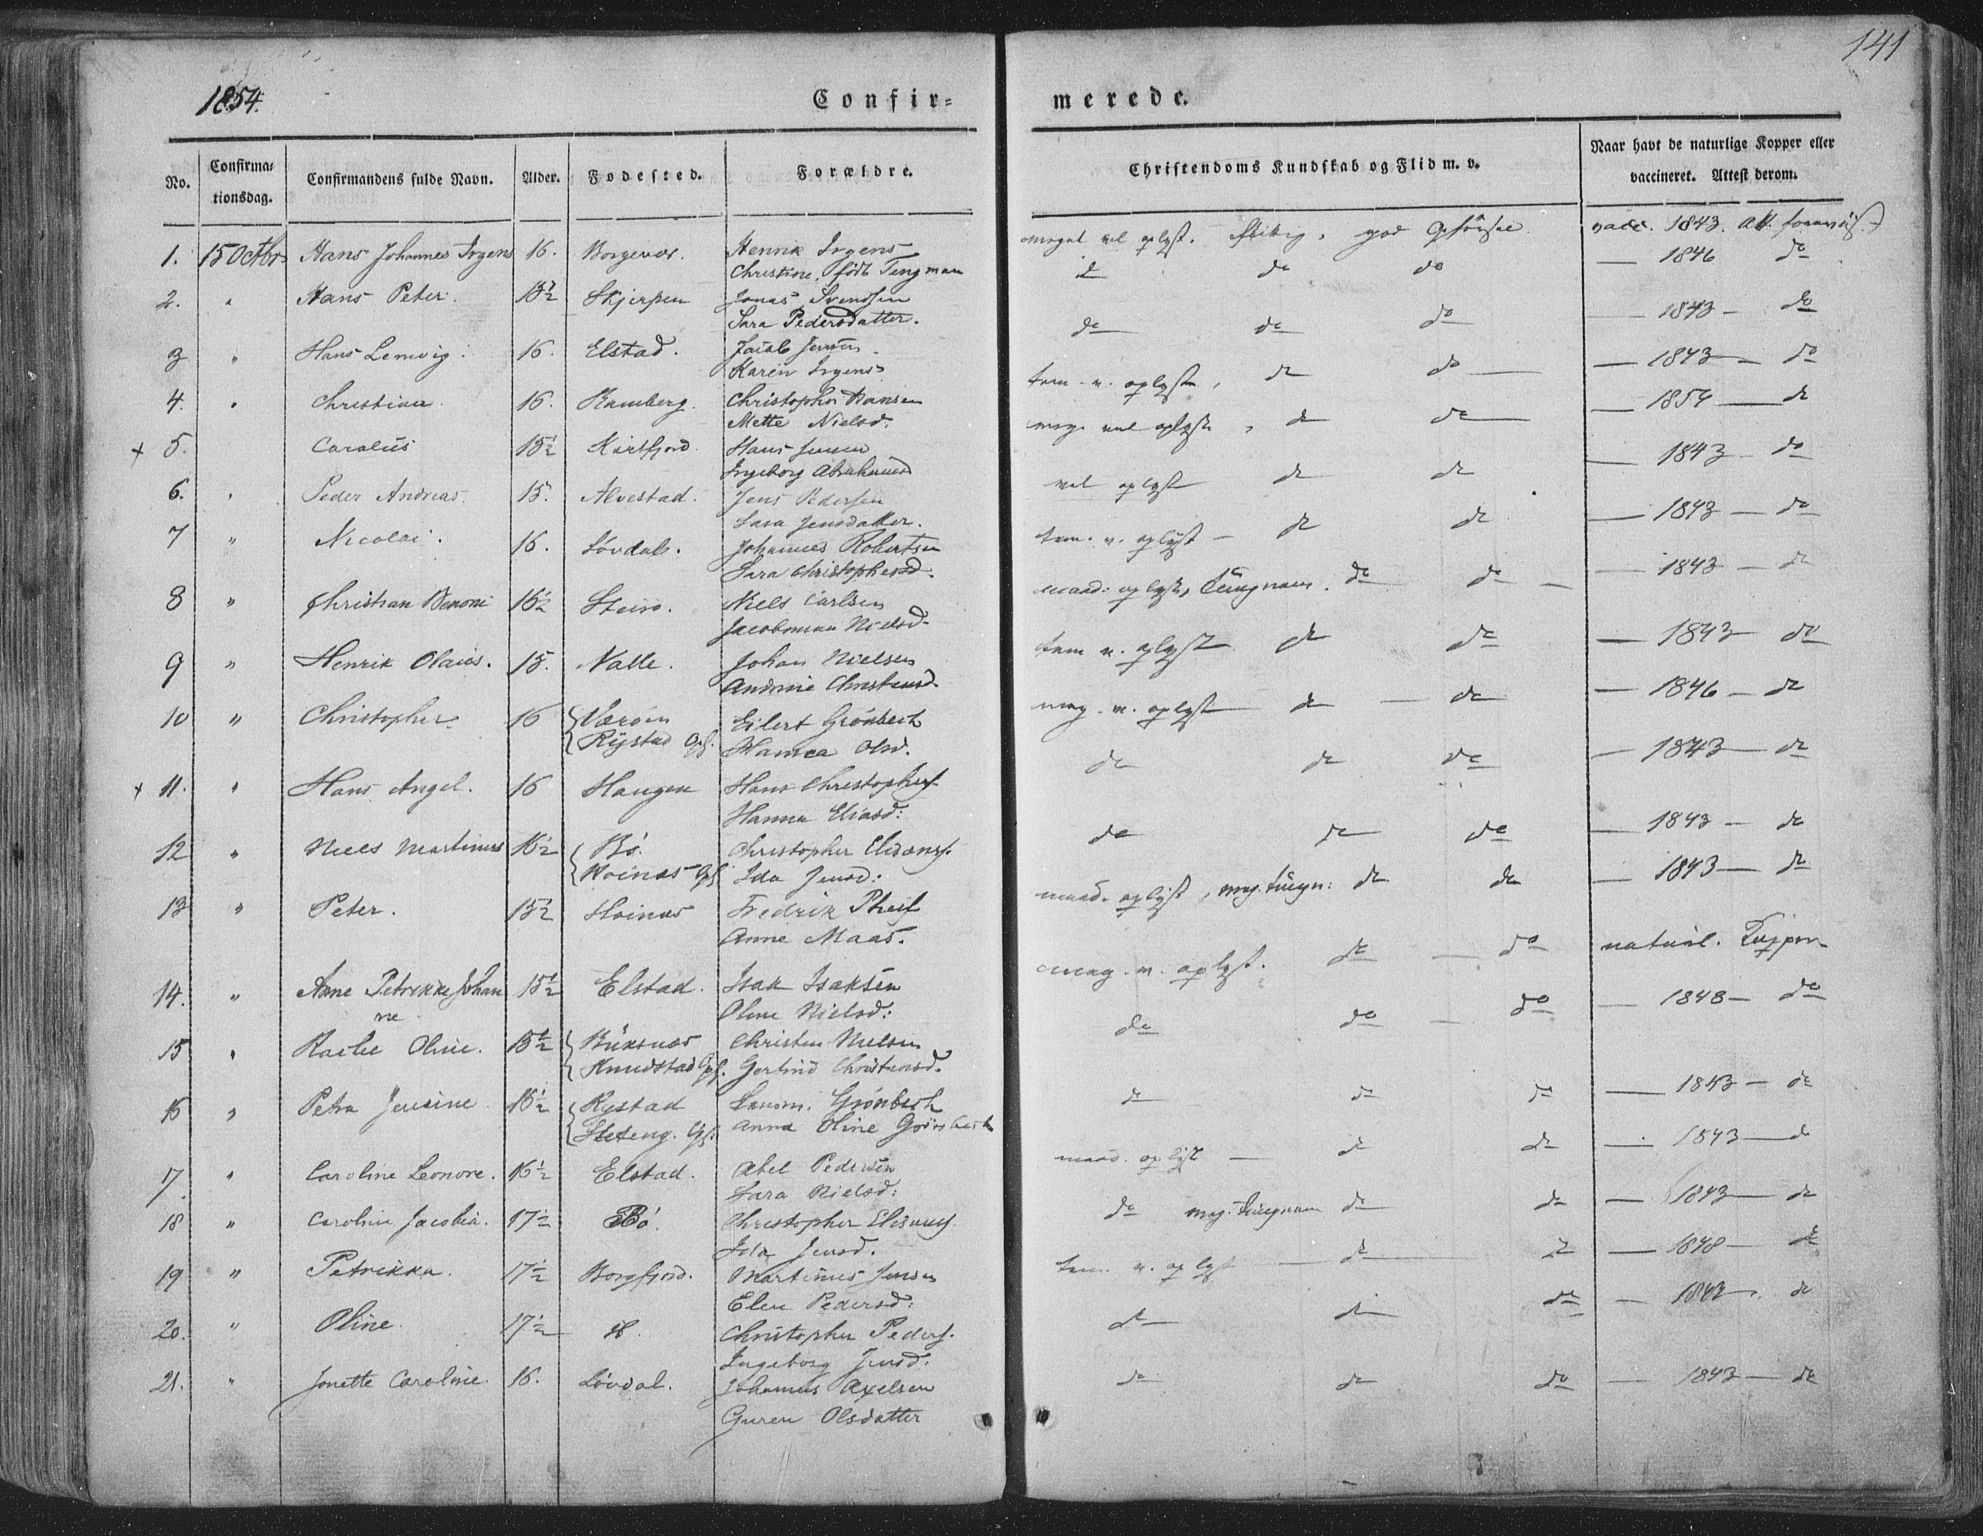 141
1854.
Confir=
merede.
No.
Confirma=
tionsdag.
Confirmandens fulde Navn.
Alder.
Fodested.
Forældre.
Christendoms Kundskab og Flid m. v.
Naar havt de naturlige Kopper eller
vaccineret. Attest derom.
1. 15 Octbr Hans Johannes Irgens 16. Borgevær Henrik Irgens meget vel oplyst. flittig, god Opførsel vacc. 1843. Att. forevist
Christine, født Tengman do do do — 1846 do
2. " Hans Peter. 15½ Skjerpen Jonas Svendsen
Sara Pedersdatter. do do do — 1843 — do
3 " Hans Lemvig. 16. Elstad. Jacob Jensen — 1843 — do
Karen Irgens tem. v. oplyst, do do
4. " Christian 16. Ramberg. Christopher Hansen — 1854 — do
Mette Nielsd. meg. vel oplyst, do do
+ 5. Carolus 15½ Kirkfjord Hans Jensen — 1843 — do
Ingeborg Abrahamsd vel oplyst do do
6. " Peder Andreas. 15. Alvestad. Jens Pedersen
Sara Jensdatter. tem. v. oplyst — do do — 1843 — do
7 " Nicolai. 16. Løvdal. Johannes Robertsen
Sara Christophersd. maad. oplyst, Tungnem. do do — — 1843 — do
8 " Christian Benoni 16½ Steiro. Niels Carlsen
Jacobmina Nielsd. tem v. oplyst do do — 1843 do
9 " Henrik Olaus. 15. Nalle. Johan Nielsen
Andrine Christensd. meg. v. oplyst do — do — 1846 — do
10 " Christopher 16 Værøen Eilert Grønbech
Rystad Opf. Hanna Olsd. do do do — 1843 — do
+ 11. " Hans Angel. 16 Haugen Hans Christophers
Hanna Eliasd: do do do — 1843 — do
12 " Niels Martinus 16½ Bø. Christopher Elisæus.
Hoinæs Opf. Ida Jensd: maad. oplyst, meg. tungn: do do — 1843 — do
13 " Peter. 15½ Hoinæs Fredrik Pheif
Anne Maas. meg. v. oplyst. do — do naturl. Kopper
14. " Anne Petrikke Johan 15½ Elstad. Isak Isaksen
ne Oline Nielsd: do do — do — 1843 — do
15 " Rachel Oline. 15½ Buksnæs Christen Nielsen
Knudstad Opf. Gertrud Christensd. do do do — 1843 — do
16 " Petra Jensine 16½ Rystad Grønbech
Steteng. Opf. Anna Oline Grønbech maad. oplyst — do do — 1843 — do
17. " Caroline Leonore. 16½ Elstad. Abel Pedersen
Sara Nielsd: do meg. tungnem do do — 1843 — do
18 " Caroline Jacobia. 17½ Bø. Christopher Elisæus
Ida Jensd. tem. v. oplyst — do do — 1848 — do
19 " Petrikka. 17½ Borgfjord. Martinus Jensen
Elen Pedersd: do do do — 1843. do
20. " Oline. 17½ do. Christopher Peders.
Ingeborg Jensd: do do do — 1843 — do
21. " Jonette Caroline. 16. Løvdal. Johannes Axelsen
Guren Olsdatter